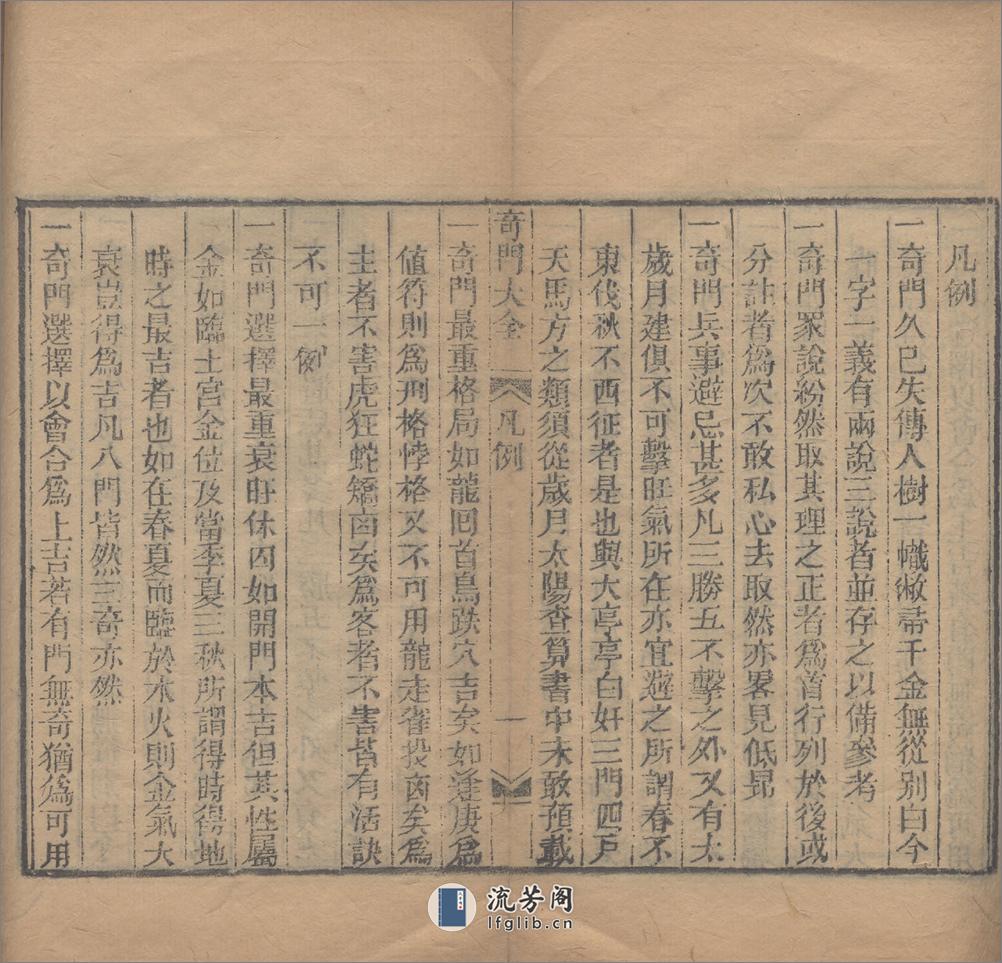 凡例
一奇門久已失傳人樹一幟敝帚千金無從别白今
一字一義有兩說三說者並存之以備參考
一奇門衆說紛然取其理之正者爲首行列於後或
分註者爲次不敢私心去取然亦畧見低昻
一奇門兵事避忌甚多凡三勝五不擊之外又有太
歲月建俱不可擊旺氣所在亦宜避之所謂春不
東伐秋不西征者是也與大亭亭白奸三門四戸
天馬方之類須從歲月太陽查算書中未敢預載
奇門大全
凡例
一
一奇門最重格局如龍回首鳥跌穴吉矣如逢庚爲
値符則爲刑格悖格又不可用龍走雀投凶矣爲
主者不害虎狂蛇矯凶矣爲客者不害皆有活訣
不可一例
一奇門選擇最重衰旺休囚如開門本吉但其性屬
金如臨土宮金位及當季夏三秋所謂得時得地
時之最吉者也如在春夏而臨於木火則金氣大
衰豈得爲吉凡八門皆然三奇亦然
一奇門選擇以會合爲上吉若有門無奇猶爲可用
流芳阁
lfglib.cn